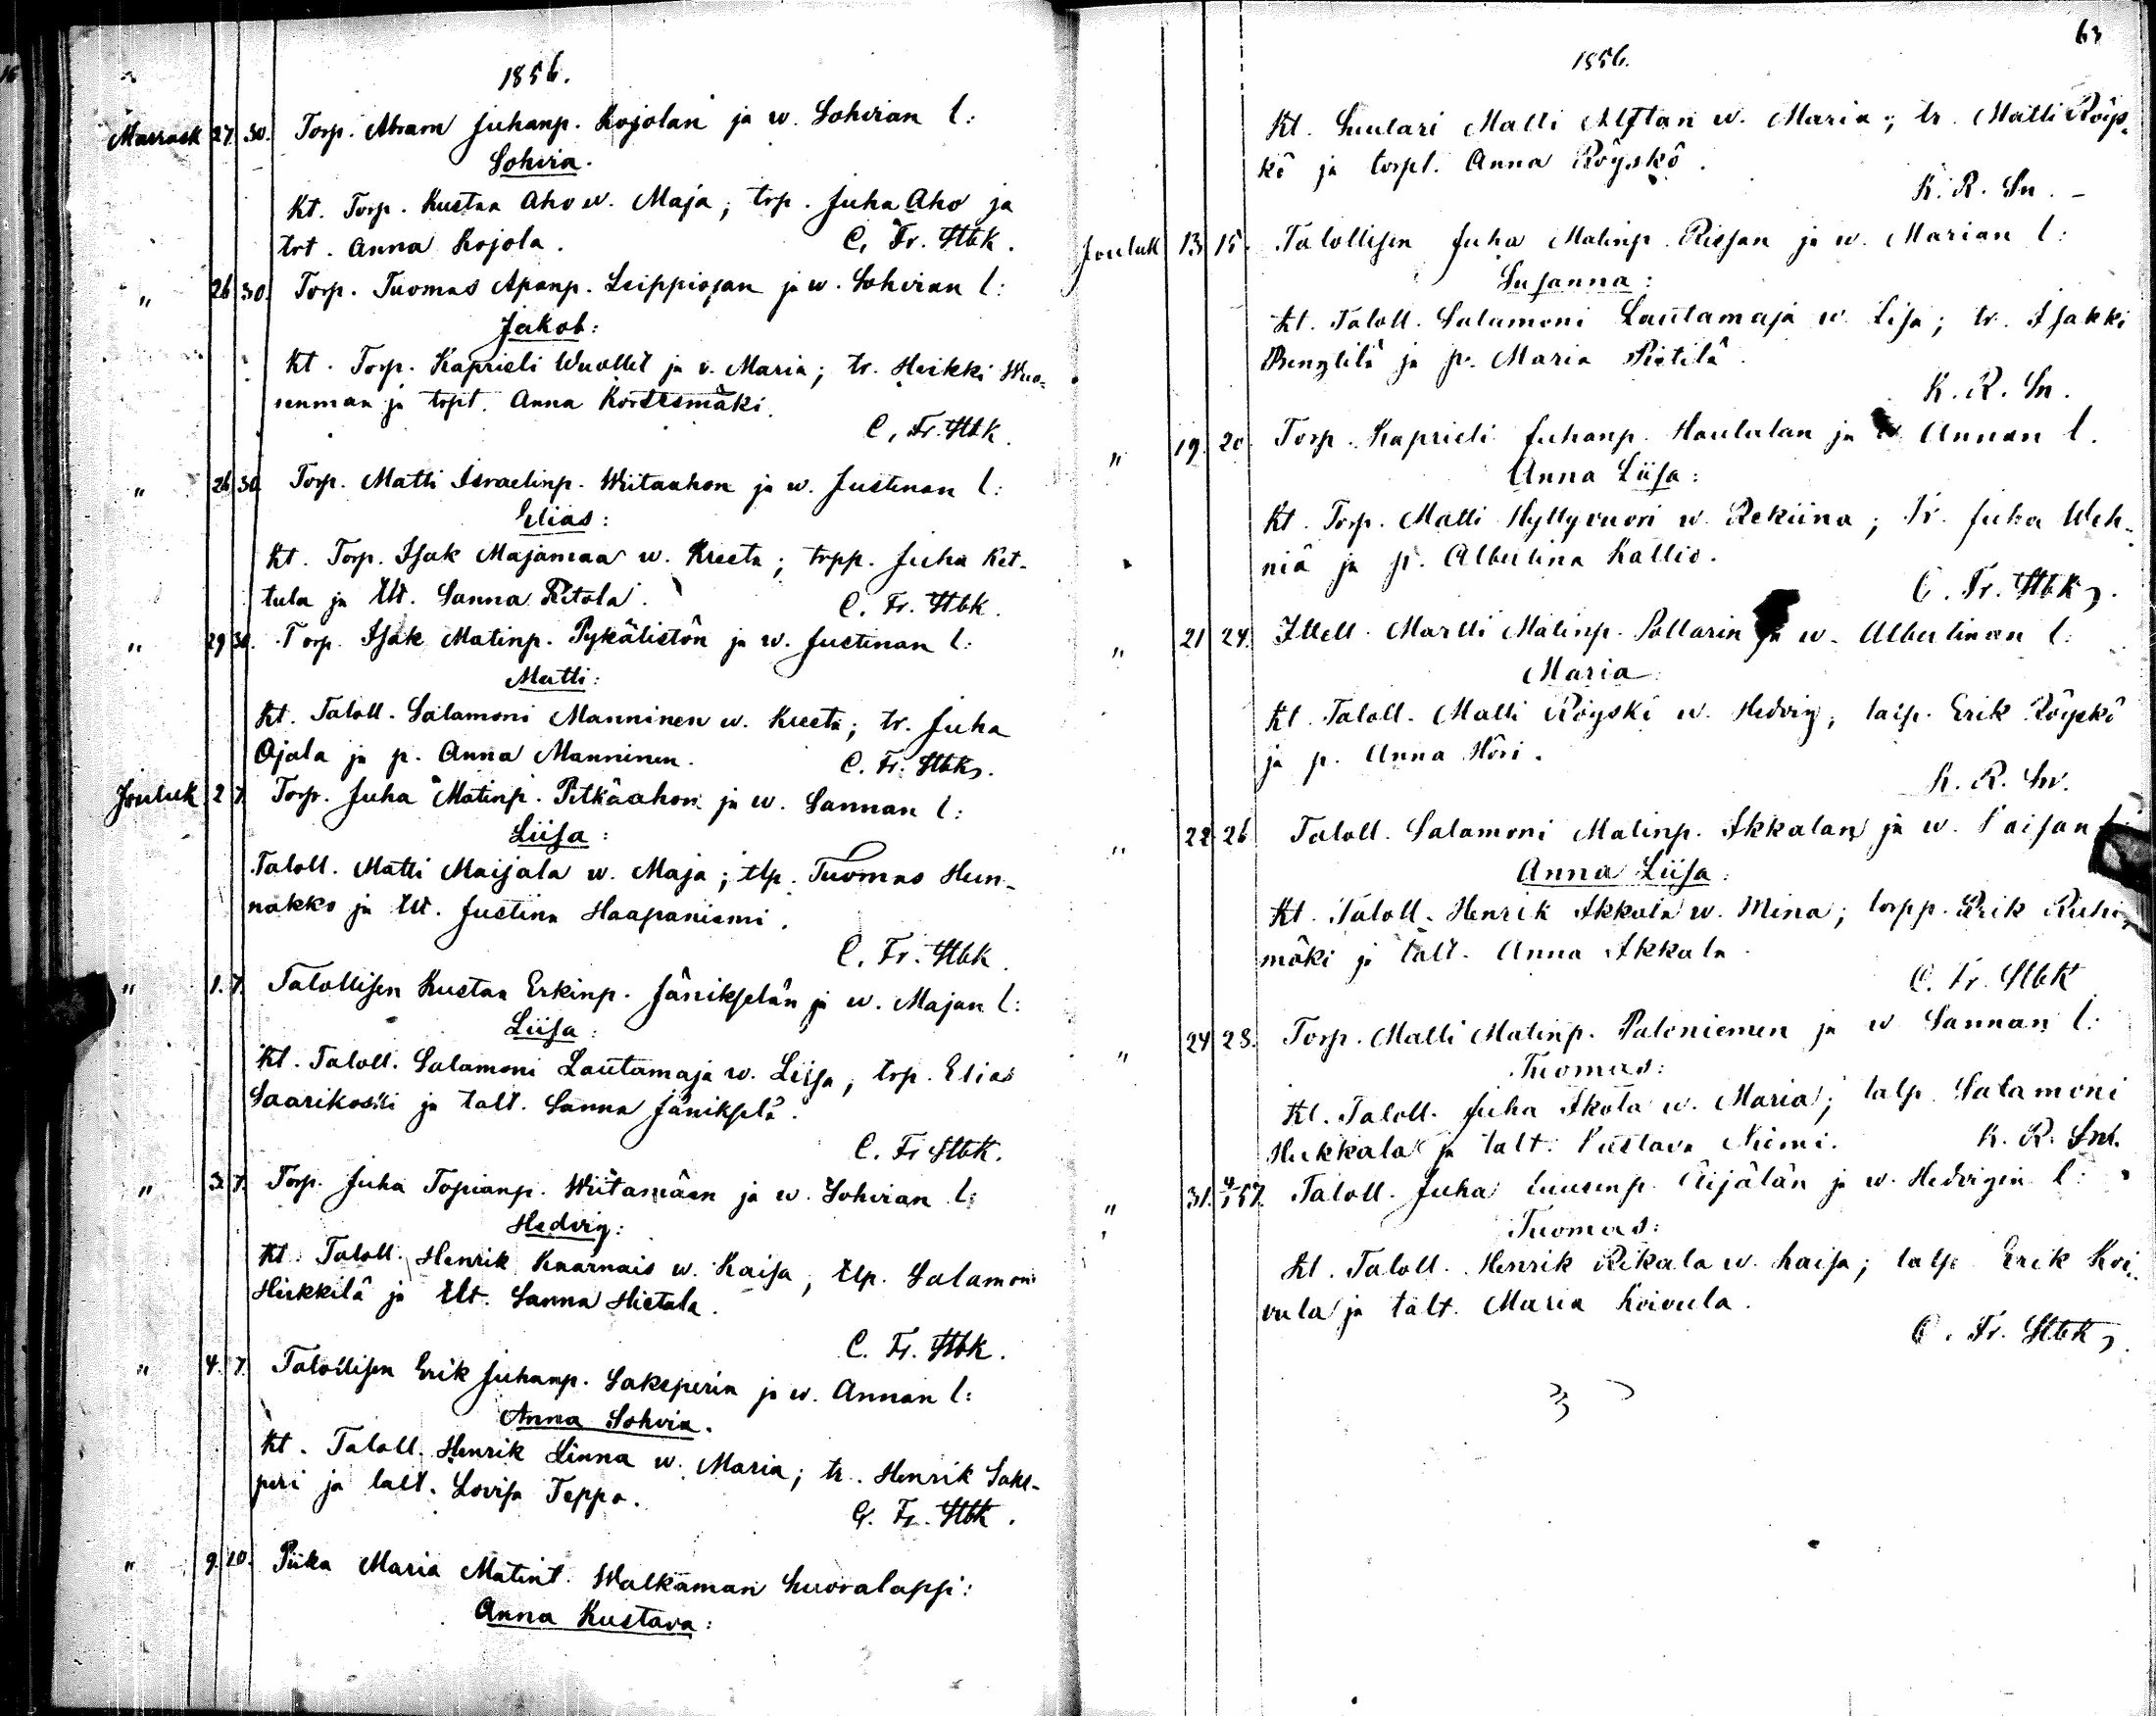 1856.
Marrask 27. 30. Torp. Abram Juhanp. Kojolan ja w. Sohvian l:
Sohvia.
Kt. Torp. Kustaa Aho w. Maja; trp. Juha Aho ja
trt. Anna Kojola. C. Fr. Stbk.
" 26 30. Torp. Tuomas Apanp. Leippiojan ja w. Sohvian l:
Jakob:
Kt. Torp. Kaprieli Wuollet ja v. Maria; tr. Heikki Wuo-
senmaa ja trpt. Anna Kortesmäki.
C. Fr. Stbk.
" 26 30. Torp. Matti Israelinp. Wiitaahon ja w. Justinan l:
Elias:
Kt. Torp. Isak Majamaa w. Kreeta; trpp. Juha Ket-
tula ja tlt. Sanna Ritola. C. Fr. Stbk.
" 29 30. Torp. Isak Matinp. Pykälistön ja w. Justinan l:
Matti:
Kt. Taloll. Salamoni Manninen w. Kreeta; tr. Juha
Ojala ja p. Anna Manninen. C. Fr. Stbk.
Jouluk 2 7. Torp. Juha Matinp. Pitkäahon ja w. Sannan l:
Liisa:
Taloll. Matti Maijala w. Maja; tlp. Tuomas Hun-
nakko ja tlt. Justina Haapaniemi.
C. Fr. Stbk.
" 1. 7. Talollisen Kustaa Erkinp. Jänikselän ja w. Majan l:
Liisa:
Kt. Taloll. Salamoni Lautamaja w. Liisa; trp. Elias
Saarikoski ja talt. Sanna Jänikselä.
C. Fr Stbk.
" 3. 7. Torp. Juha Topianp. Wiitamäen ja w. Sohvian l:
Hedvig:
Kt. Taloll. Henrik Knarnais w. Kaisa; tlp. Salamoni
Heikkilä ja tlt. Sanna Hietala.
C. Fr. Stbk.
" 4. 7. Talollisen Erik Juhanp. Sakeperin ja w. Annan l:
Anna Sohvia.
Kt. Taloll. Henrik Linna w. Maria; tr. Henrik Sake-
peri ja talt. Lovisa Teppo.
C. Fr. Stbk.
" 9. 10. Piika Maria Matint. Walkaman huoralapsi:
Anna Kustava:
63
1856.
Kt. Suutari Matti Alftan w. Maria; tr. Matti Röys-
kö ja torpt. Anna Röyskö.
K. R. Sn.
Jouluk 13 15. Talollisen Juha Matinp. Riesan ja w. Marian l:
Susanna:
Kt. Taloll. Salamoni Lautamaja w. Lisa; tr. Isakki
Pengtilä ja p. Maria Pietilä.
K. R. Sn.
" 19. 20. Torp. Kaprieli Juhanp. Hautalan ja w. Annan l.
Anna Liisa:
Kt. Torp. Matti Hyllyvuori w. Rekiina; Tr. Juha Weh-
niä ja p. Albertina Kallio.
C. Fr. Stbk.
" 21 24. Itsell. Martti Matinp. Pollarin ja w. Albertinan l:
Maria:
Kt. Taloll. Matti Röyskö w. Hedvig; talp. Erik Röyskö
ja p. Anna Höri.
K. R. Sn.
" 22 26 Taloll. Salamoni Matinp. Akkalan ja w. Kaisan l:
Anna Liisa:
Kt. Taloll. Henrik Akkala w. Mina; torpp. Erik Riihi-
mäki ja talt. Anna Akkala.
C. Fr. Stbk
" 24 28. Torp. Matti Matinp. Paloniemen ja w Sannan l:
Tuomas:
Kt. Taloll. Juha Akola w. Maria; talp. Salamoni
Hukkala ja talt. Kustava Niemi. K. R. Sn.
" 31. 4/1 57. Taloll. Juha Äijälän ja w. Hedvigin l:
Tuomas:
Kt. Taloll. Henrik Rekala w. Kaisa; talp. Erik Koi-
vula ja talt. Maria Koivula.
C. Fr. Stbk.